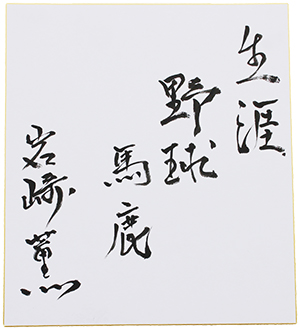 生涯
野球
馬鹿
岩崎薫